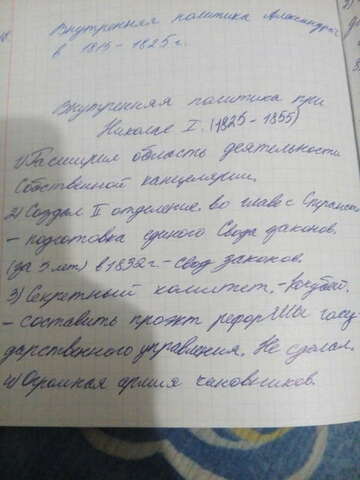 Внутренняя политика Александра
в 1815-1825 г.
Внутренняя политика при
Николае I. (1825-1855)
1) Расширил область деятельности
Собственной канцелярии.
2) Создал II отделение во главе с
- подготовка единого Свода законов.
(за 5 лет) в 1832 г. - свод законов.
3) Секретный комитет. -
- составить проэкт реформы госу
дарственного управления. Не сделал.
4) Огромная армия чиновников.